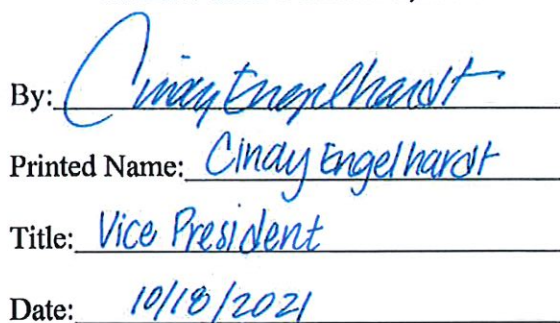 By: Cindy Engelhardt
Printed Name: Cindy Engelhardt
Title: Vice President
Date: 10/18/2021